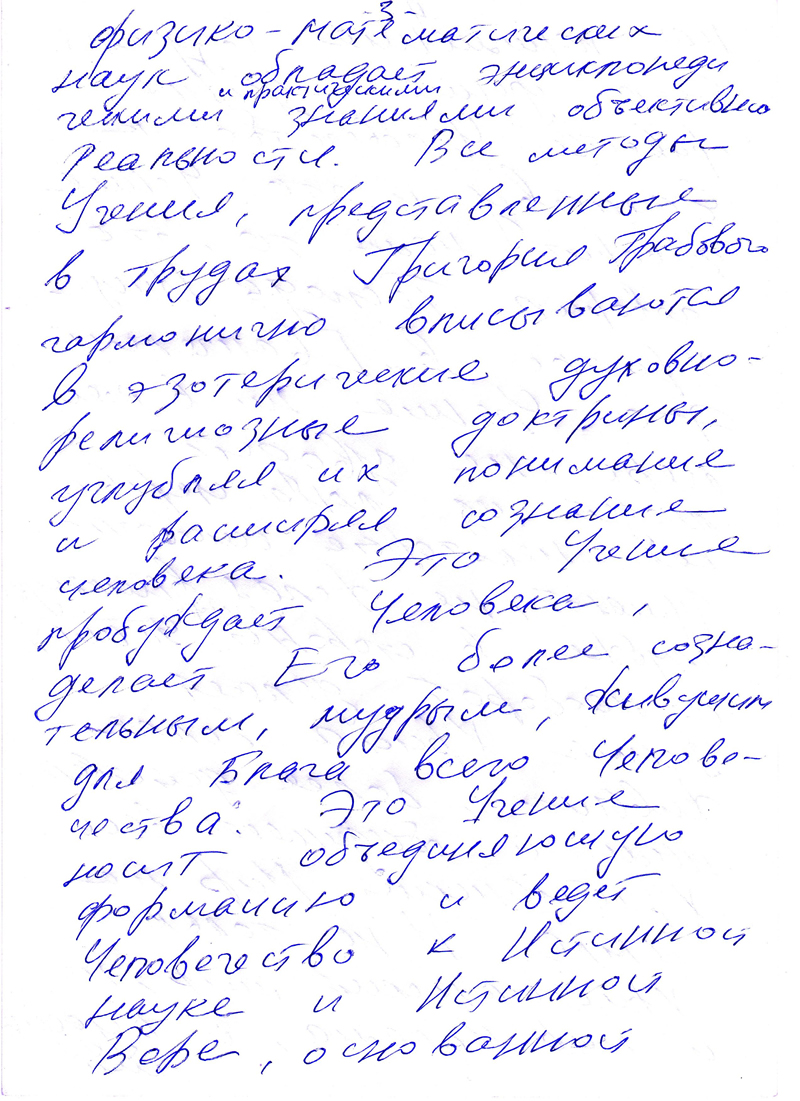 3
физико-математических
наук обладает энциклопеди
и практическими
ческими знаниями объективно
Реальности. Все методы
Учения, представленные
в трудах Григория Грабового
гармонично вписываются
в эзотерические духовно-
религиозные доктрины,
углубляя их понимание
и расширяя сознание
человека. Это Учение
пробуждает Человека,
делает Его более созна-
тельным, мудрым, живущим
для Блага всего Челове-
чества. Это Учение
носит объединяющую
формацию и ведёт
Человечество к Истинной
науке и Истинной
Вере, основанной